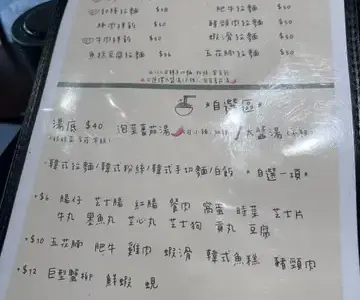 拉麵 $50 肥牛拉麵 $50
$50 豬頸肉拉麵 $50
牛肉 $50 蝦滑拉麵 $50
魚 豆腐拉麵 $46 五花腩拉麵 $50
*自選區*
湯底 $40 泡菜蕃茄湯 / 大醬湯
·韓式拉麵/韓式粉絲/韓式手切麵/白飯 *自選一項*
·$6 腸仔 芝士腸 紅腸 餐肉 窩蛋 時菜 芝士片
牛丸 墨魚丸 芝心丸 芝士狗 貢丸 豆腐
·$10 五花腩 肥牛 雞肉 蝦滑 韓式魚糕 豬頸肉
·$12 巨型蟹柳 鮮蝦 蜆